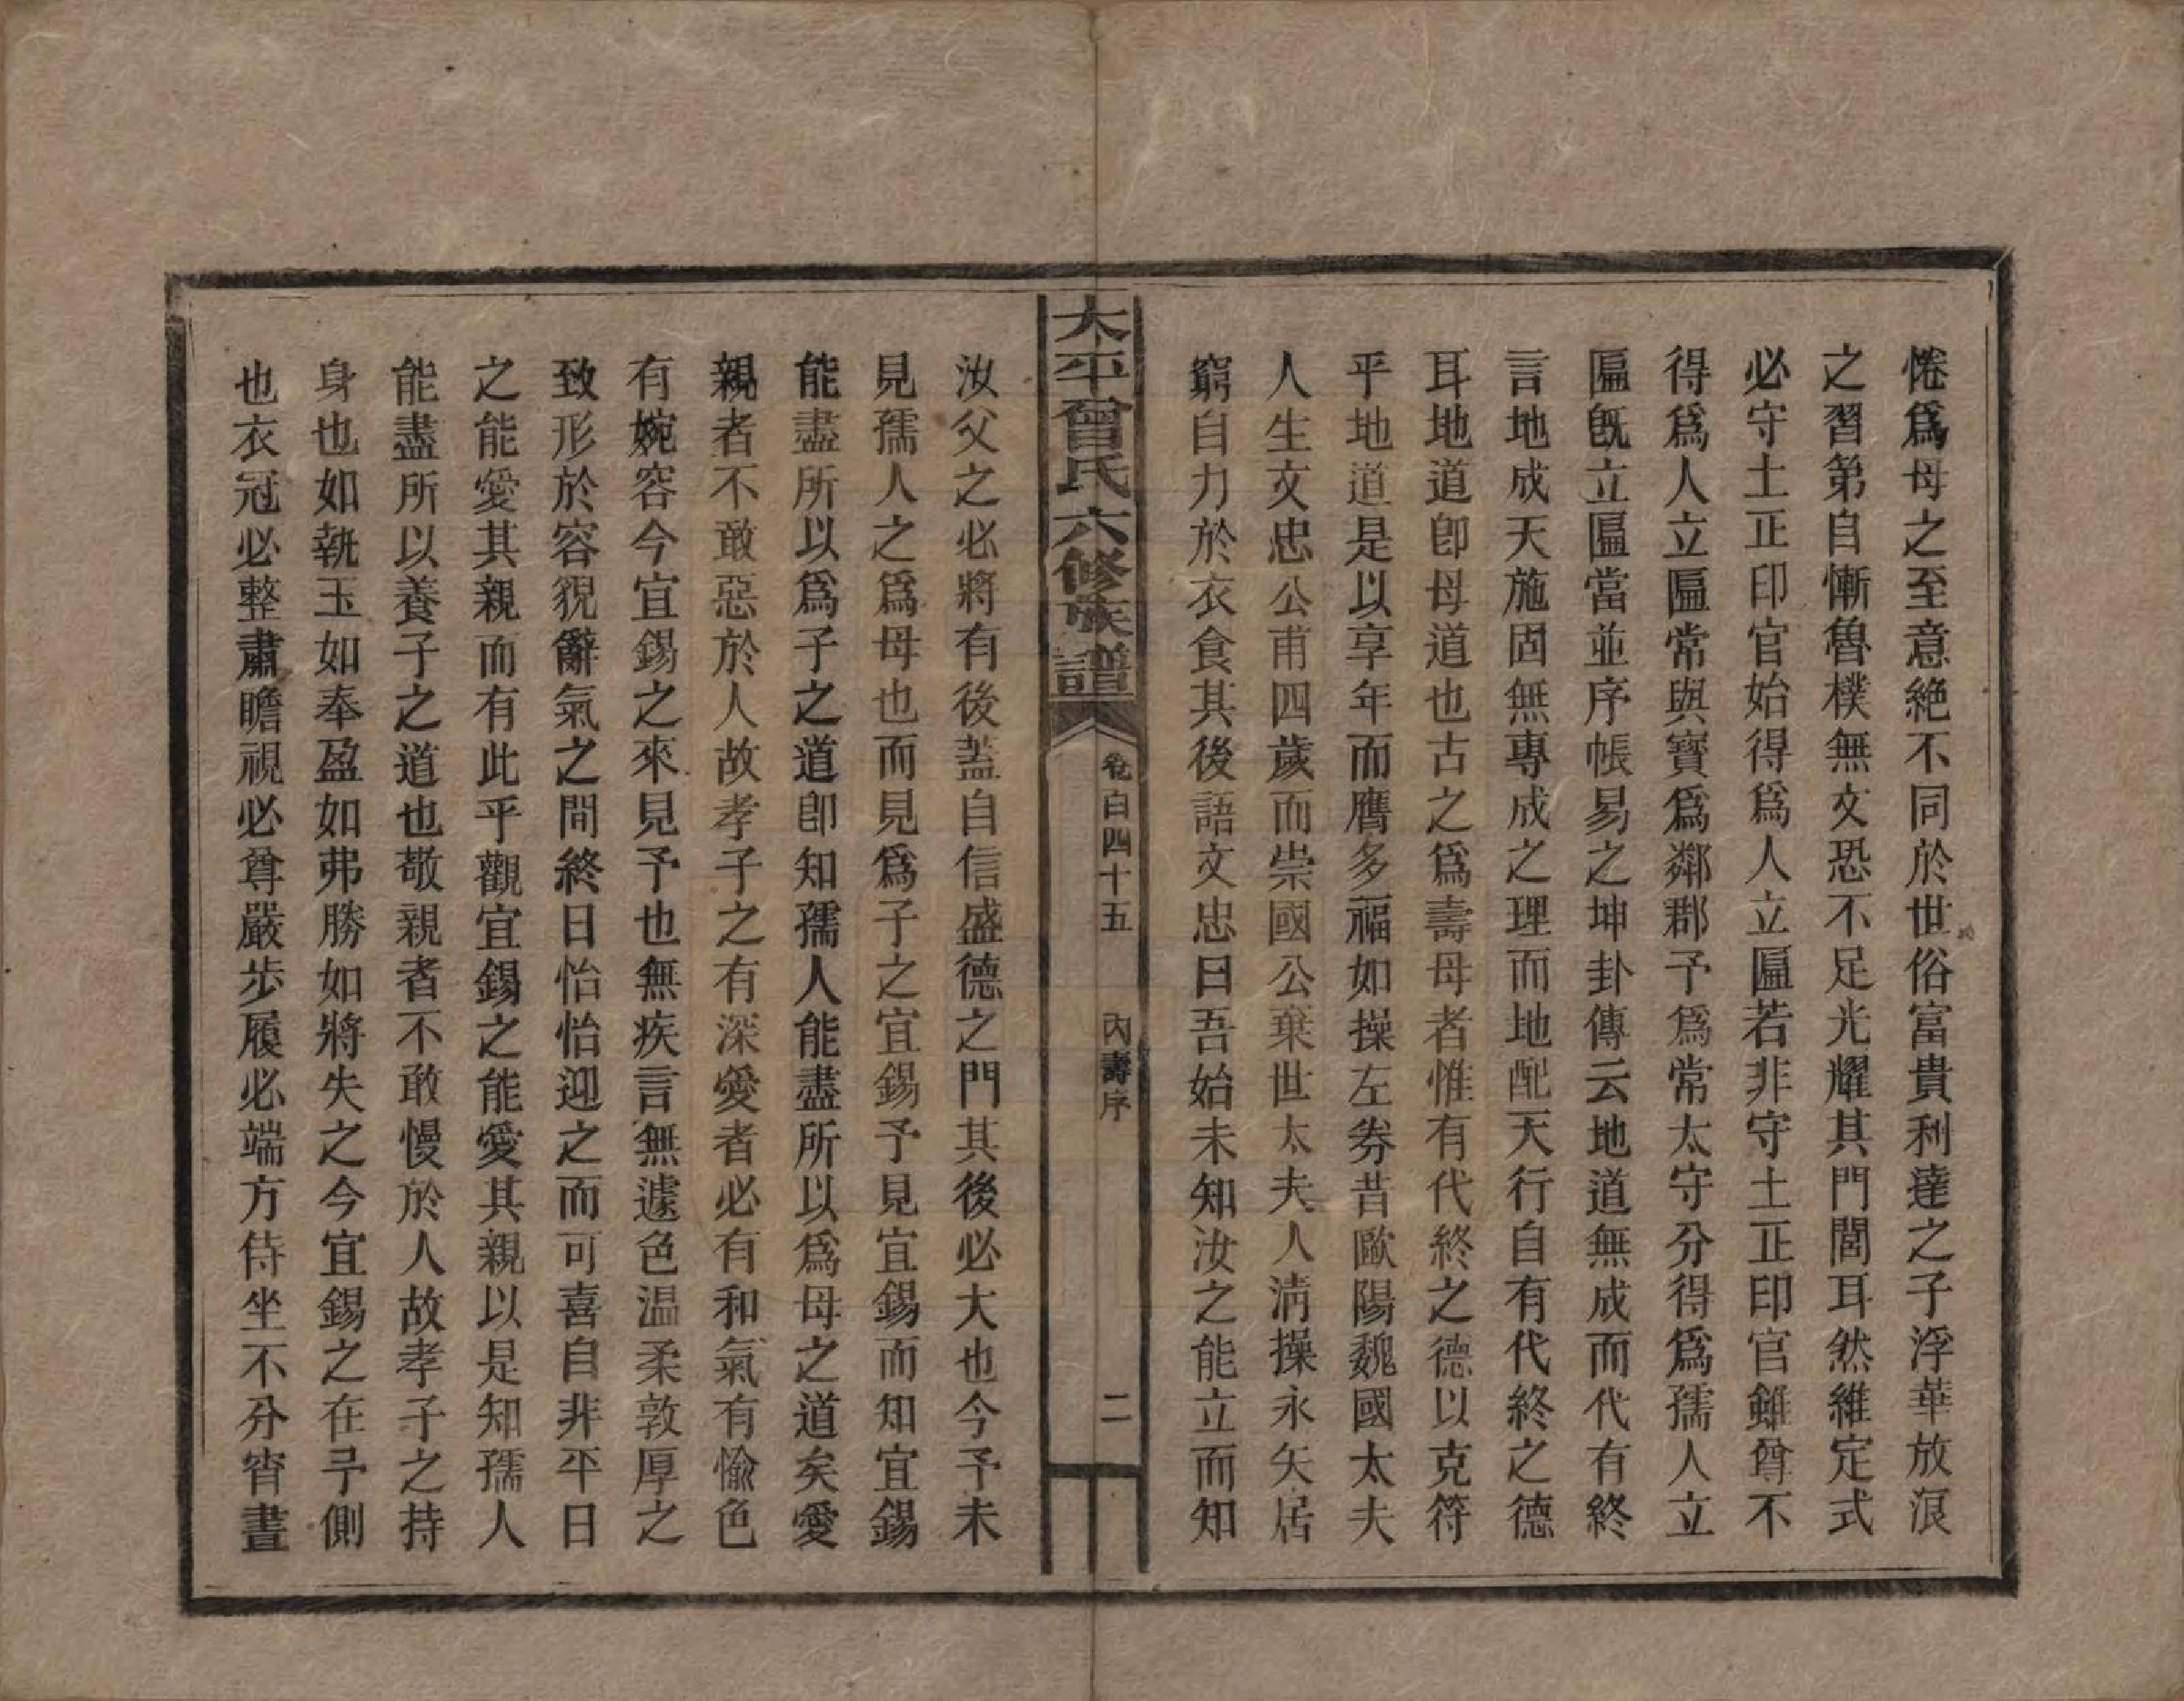 惓爲母之至意絶不同於世俗富貴利達之子浮華放浪
之習第自慚魯樸無文恐不足光耀其門閭耳然維定式
必守土正印官始得爲人立匾若非守土正印官雖尊不
得爲人立匾常與寳爲鄰郡予爲常太守分得爲孺人立
匾旣立匾當並序帳易之坤卦傳云地道無成而代有終
言地成天施固無專成之理而地配天行自有代終之德
耳地道卽母道也古之爲壽母者惟有代終之德以克符
乎地道是以享年而膺多福如操左劵昔歐陽魏國太夫
人生文忠公甫四歲而崇國公棄世太夫人淸操永矢居
窮自力於衣食其後語文忠曰吾始未知汝之能立而知
太平曾氏六修族譜
卷百四十五
內壽序
二
汝父之必將有後蓋自信盛德之門其後必大也今予未
見孺人之爲母也而見爲子之宜錫予見宜錫而知宜錫
能盡所以爲子之道卽知孺人能盡所以爲母之道矣愛
親者不敢惡於人故孝子之有深愛者必有和氣有愉色
有婉容今宜錫之來見予也無疾言無遽色温柔敦厚之
致形於容貌辭氣之間終日怡怡迎之而可喜自非平日
之能愛其親而有此乎觀宜錫之能愛其親以是知孺人
能盡所以養子之道也敬親者不敢慢於人故孝子之持
身也如執玉如奉盈如弗勝如將失之今宜錫之在予側
也衣冠必整肅瞻視必尊嚴步履必端方侍坐不分宵晝